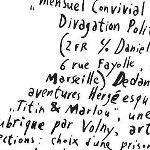 „mensuel Convivial
Divagation Polit
(2FR % Daniel
6 rue Fayolle,
Marseille) Dedan
aventures Hergé esqu
"Titin & Marlou", une
ubrique par Volny, art
ections: choix d'une prison